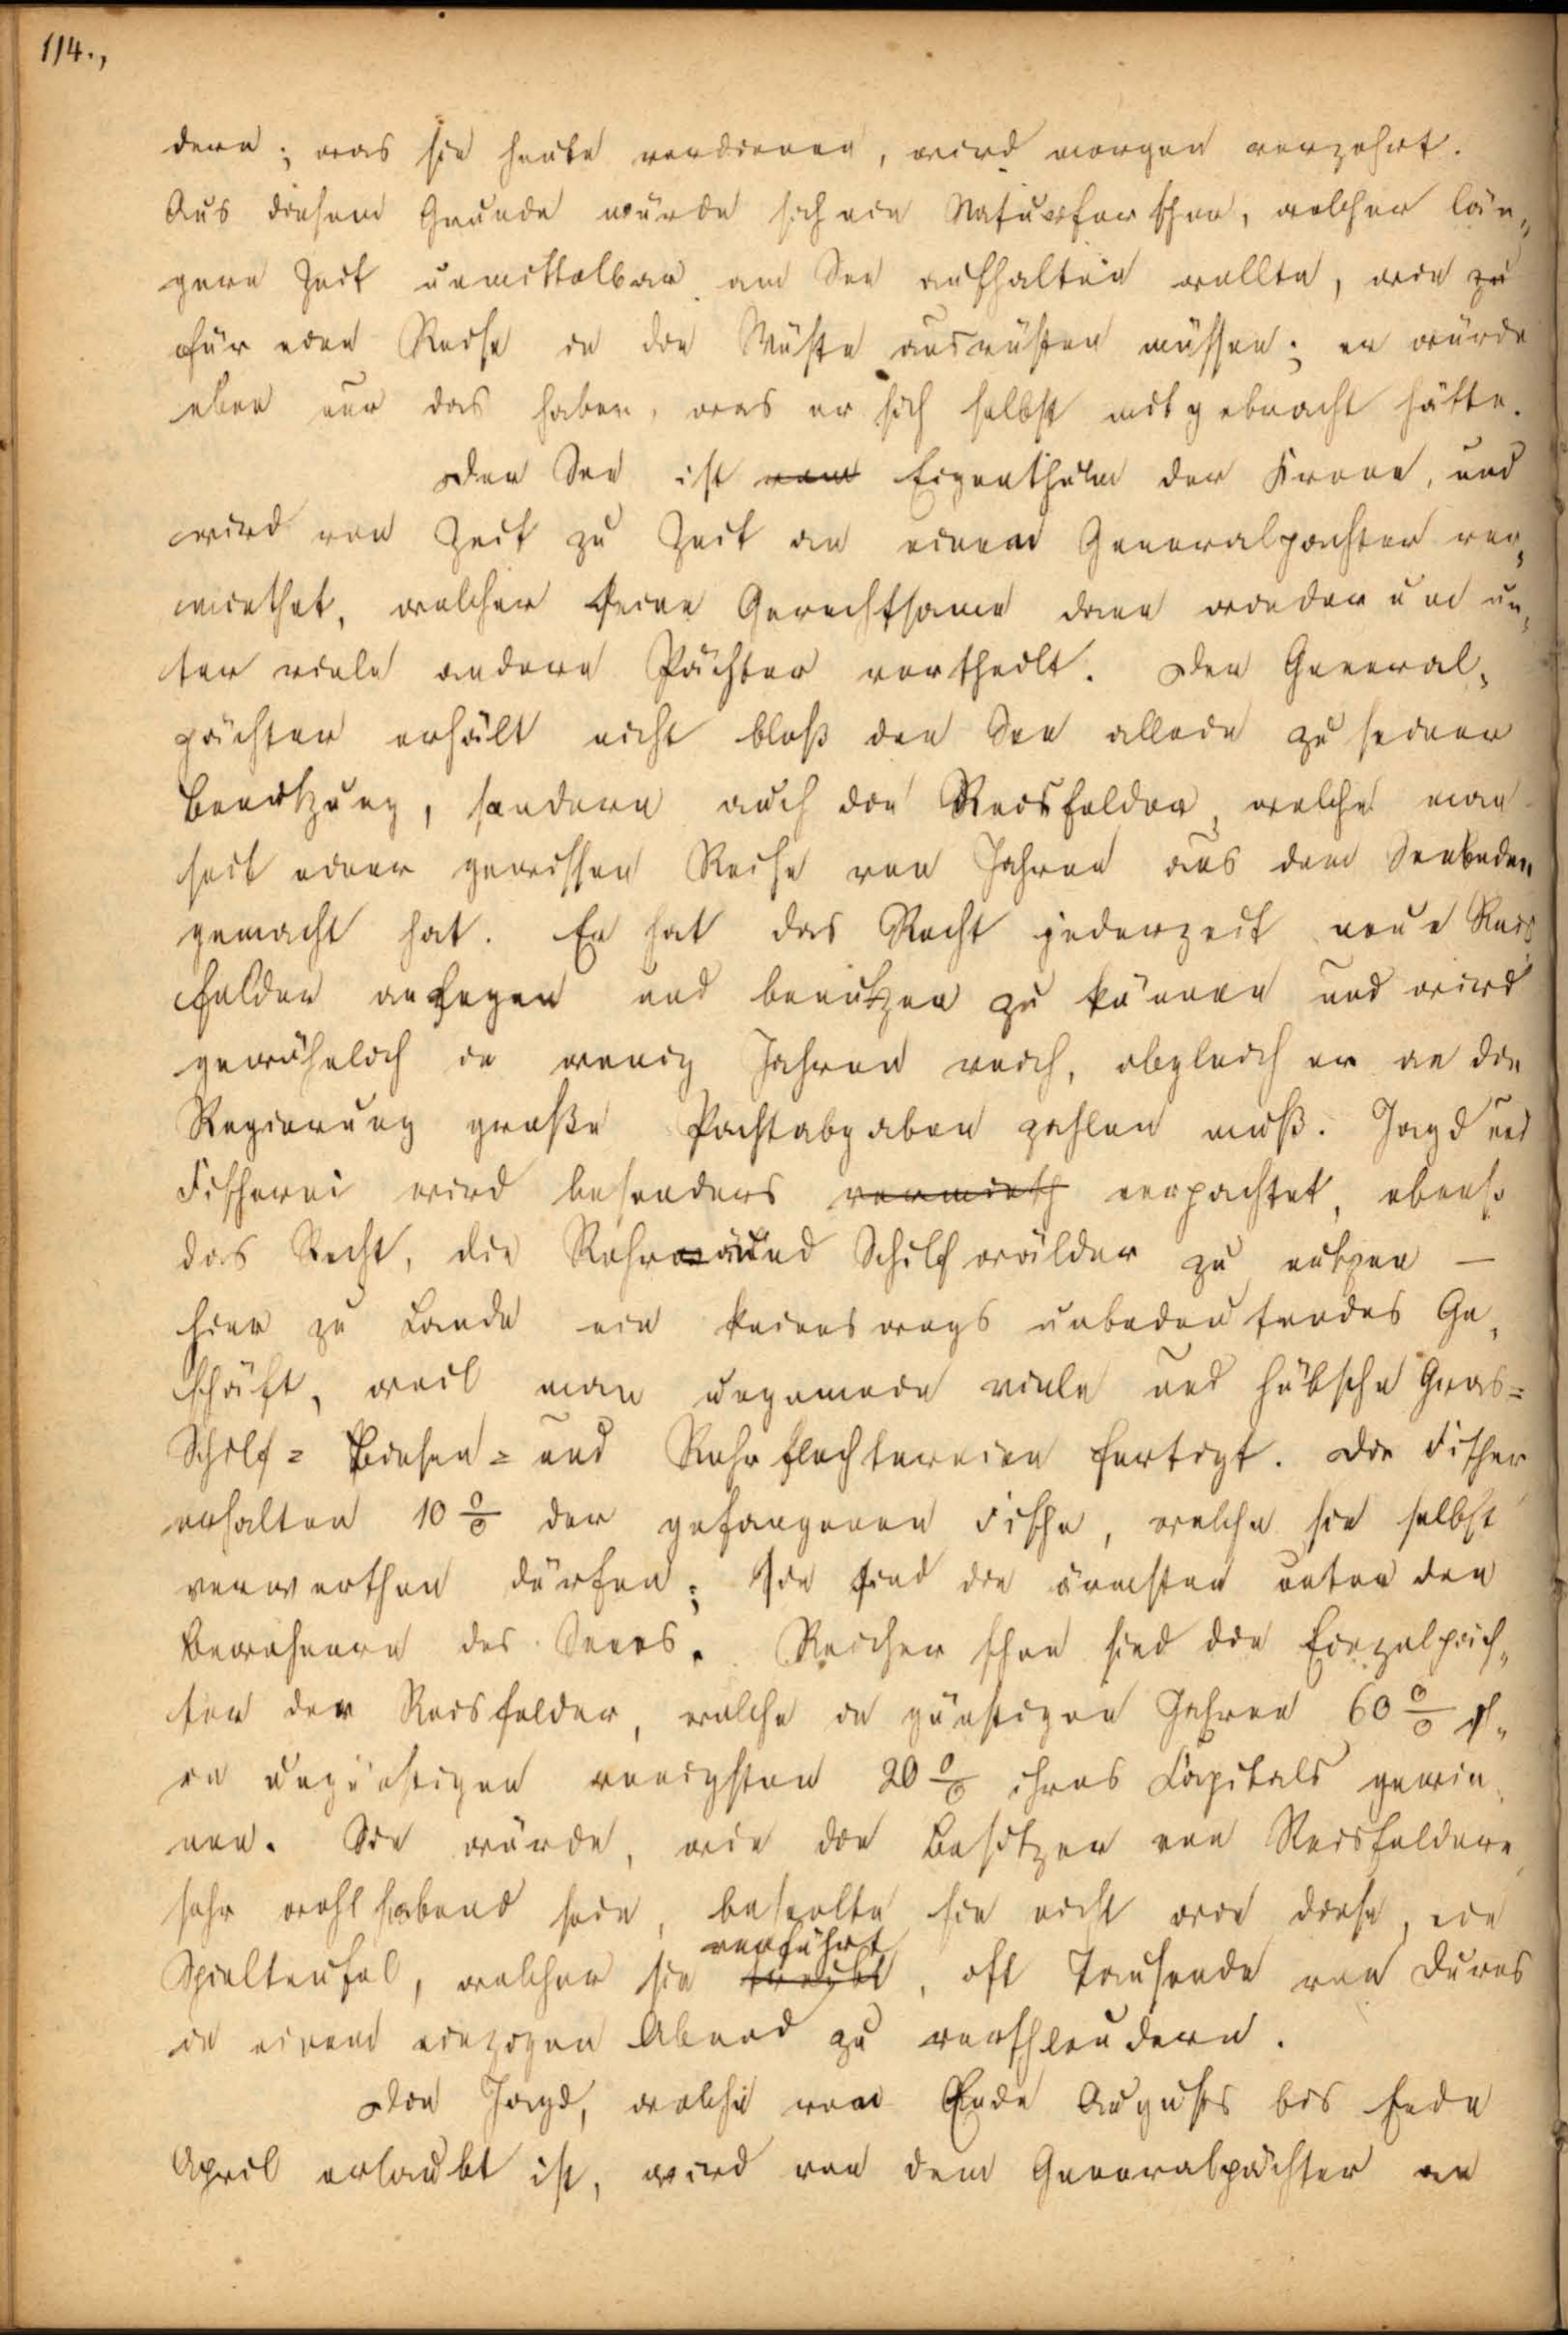 114.,
dern; was sie heute verdienen, wird morgen verzehrt.
Aus diesem Grunde würde sich ein Naturforscher, welcher län„
gere Zeit unmittelbar am See aufhalten wollte, wie zu
für eine Reise in die Wüste ausrüsten müssen; er würde
eben nur das haben, was er sich selbst mitgebracht hätte.
Der See ist vom Eigenthum der Krone, und
wird von Zeit zu Zeit an einem Generalpachter ver„
miethet, welcher seine Gerechtsame dann wiederum un„
ter viele andere Pächter vertheilt. Der General„
pächter erhält nicht bloß den See allein zu seiner
Benutzung, sondern auch die Reisfelder, welche man
seit einer gewissen Reihe von Jahren aus dem Seeboden
gemacht hat. Er hat das Recht jederzeit neue Reis„
felder anlegen und benützen zu können und wird
gewöhnlich in wenig Jahren reich, obgleich er an die
Regierung große Pachtabgaben zahlen muß. Jagd und
Fischerei wird besonders vermieth verpachtet, ebenso
das Recht, die Rohr und Schilfwälder zu nutzen —
hier zu Lande ein keineswegs unbedeutendes Ge„
schäft, weil man ungemein viele und hübsche Gras=
Schilf= Binsen= und Rohrflechtereien fertigt. Die Fischer
erhalten 10 % der gefangenen Fische, welche sie selbst
verwerthen dürfen; Sie sind die ärmsten unter den
Bewohnern des Sees. Reicher schon sind die Einzelpäch„
ter der Reisfelder, welche in günstigen Jahren 60 %
in ungünstigen wenigsten 20 % ihres Capitals gewin„
nen. Sie würde, wie die Besitzer von Reisfeldern
sehr wohlhabend sein, beseelte sie nicht wie diese, ein
verführt
Spielteufel, welcher sie treibt, oft Tausende von Duros
in einem einzigen Abend zu verschleudern.
Die Jagd, welche von Ende Augusts bis Ende
April erlaubt ist, wird von dem Generalpächter an